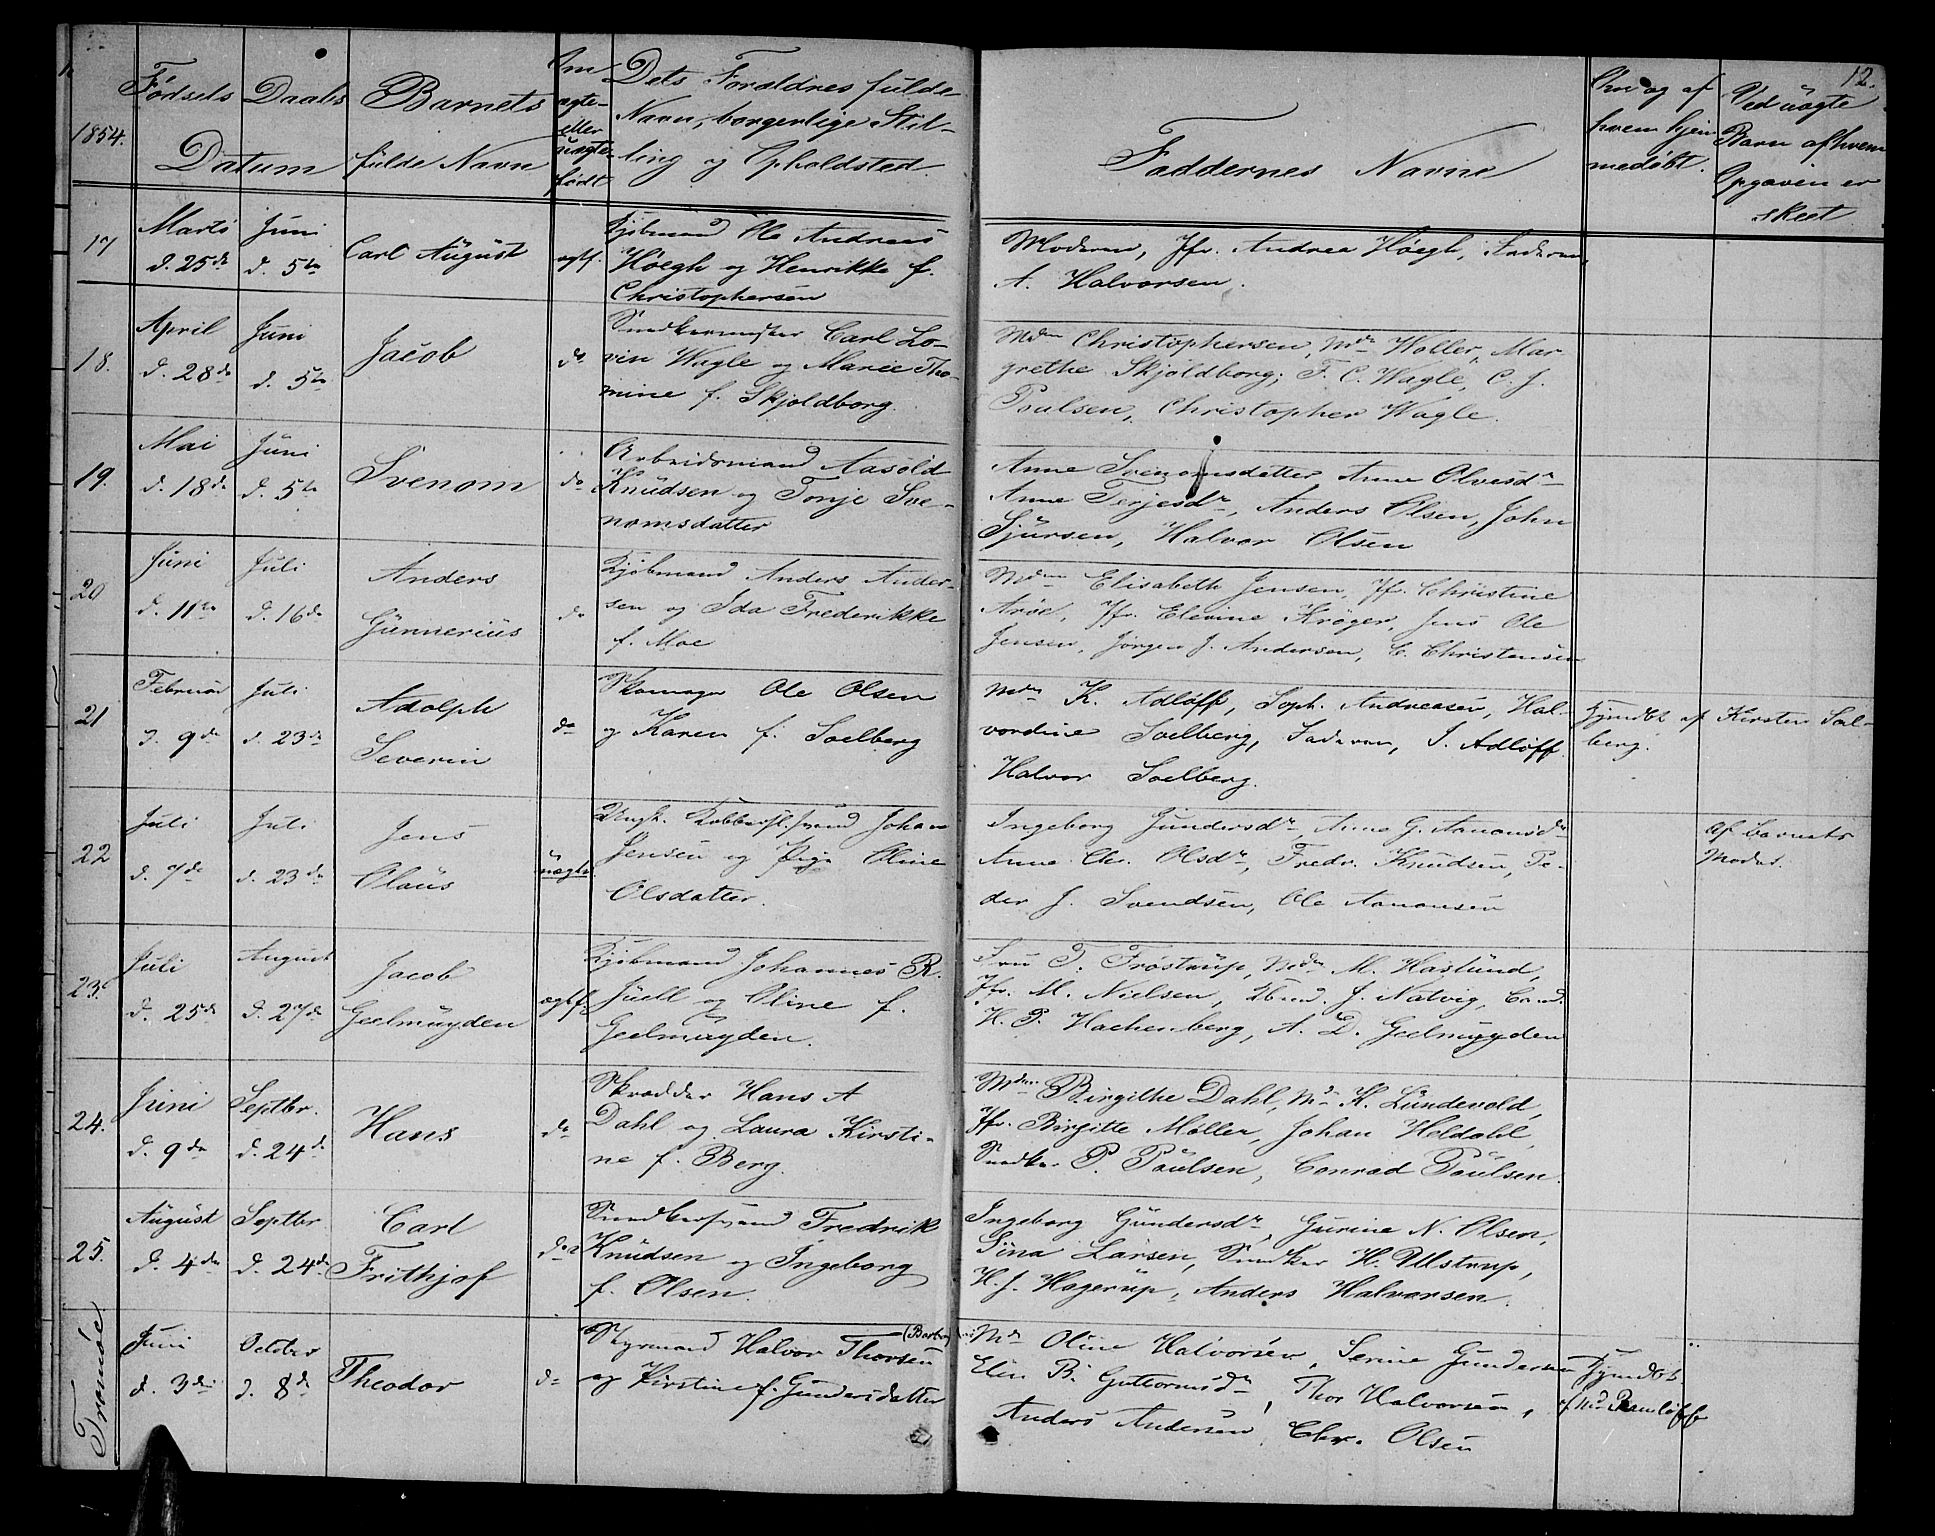 12.
1854.
Fødsels Daabs
Datum
Barnets
fulde Navn
Om
ægte
eller
uægte
født
Dets Forældres fulde
Navn, borgerlige Stil-
ling og Opholdsted.
Faddernes Navne
Om og af
hvem hjem
medøbt.
Ved uægte
Barn af hvem
Opgaven er
skeet
17
Marts
d. 25de
Juni
d. 5te
Carl August
ægtf.
Kjøbmand Ole Andreas
Høegh og Henrikke f.
Christophersen
Moderen, Jfr. Andrea Høegh, Faderen
A. Halvorsen.
18.
April
d. 28de
Juni
d. 5te
Jacob
do
Snedkermester Carl Lo-
vin Wagle og Marie Tho-
mine f. Skjoldborg.
Mdm Christophersen, Mdm Holler, Mar-
grethe Skjoldborg; F. C. Wagle, C. J.
Poulsen, Christopher Wagle.
19.
Mai
d. 18de
Juni
d. 5te
Svenom
do
Arbeidsmand Aasold
Knudsen og Tonje Sve-
nomsdatter
Anne Svenomsdatter Anne Olvesdr
Anne Terjesdr, Anders Olsen, John
Sjursen, Halvor Olsen
20
Juni
d. 11te
Juli
d. 16de
Anders
Gunnerius
do
Kjøbmand Anders Ander-
sen og Ida Frederikke
f. Moe
Mdm Elisabeth Jensen, Jfr. Christine
Arøe, Jfr. Elevine Krøger, Jens Ole
Jensen, Jørgen J. Andersen, C. Christensen
21
Februar
d. 9de
Juli
d. 23de
Adolph
Severin
do
Skomager Ole Olsen
og Karen f. Soelberg
Mdm K. Adløff, Soph. Andreasen, Hal-
vordine Soelberg, Faderen, J. Adløff
Halvor Soelberg.
Hjemdbt af Kirsten Sol-
berg.
22
Juli
d. 7de
Juli
d. 23de
Jens
Olaus
uægte
Ungk. Kobbersl.svend Johan
Jensen og Pige Oline
Olsdatter.
Ingeborg Gundersdr Anne G. Aanonsdr
Anne Chr. Olsdr, Fredr. Knudsen, Pe-
der J. Svendsen, Ole Aanonsen
Af barnets
Moder.
23.
Juli
d. 25de
August
d. 27de
Jacob
Geelmuyden
ægtf.
Kjøbmand Johannes R.
Juell og Oline f.
Geelmuyden.
Fru T. Frøstrup, Mdm M. Haslund,
Jfr. M. Nielsen, Kbmd. J. Natvig, Cand.
H. P. Hachenberg, A. D. Geelmuyden
24.
Juni
d. 9de
Septbr.
d. 24de
Hans
do
Skrædder Hans A
Dahl og Laura Kirsti-
ne f. Berg.
Mdm Birgithe Dahl, Md K. Lundevold,
Jfr. Birgitte Møller, Johan Heldahl,
Snedker P. Poulsen, Conrad Poulsen.
25.
August
d. 4de
Septbr
d. 24de
Carl
Frithjof
do
Snedkersvend Fredrik
Knudsen og Ingeborg
f. Olsen.
Ingeborg Gundersdr, Gurine N. Olsen,
Sina Larsen, Snedker H. Ulstrup,
H. J. Hagerup, Anders Halvorsen.
Tromsøe.
Juni
d. 3die
October
d. 8de
Theodor
do
Styrmand Halvor Thorsen
og Kirstine f. Gundersdatter
Md Oline Halvorsen, Serine Gundersen
Elen B. Guttormsdr, Thor Halvorsen,
Anders Andersen, Chr. Olsen
Hjemdbt.